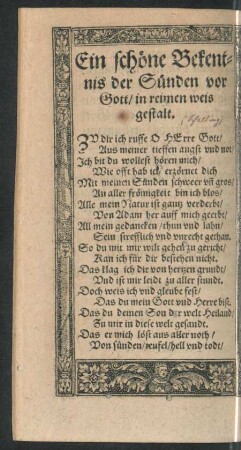 Ein schöne Bekent-
nis der Sünden vor
Gott/ in reimen weis
gestalt.
ZV dir ich ruffe O HErre Gott/
Aus meiner tieffen angst vnd not/
Ich bit du wollest hören mich/
Wie offt hab ich erzörnet dich
Mit meinen Sünden schweer vñ gros/
An aller frömigkeit bin ich blos/
Alle mein Natur ist gantz verderbt/
Von Adam her auff mich geerbt/
All mein gedancken/ thun vnd lahn/
Sein streefflich vnd vnrecht gethan.
So du mit mir wilt gehen zu gericht/
Kan ich für dir bestehen nicht.
Das klag ich dir von hertzen grundt/
Vnd ist mir leidt zu aller stundt.
Doch weis ich vnd gleube fest/
Das du mein Gott vnd Herre bist.
Das du deinen Son der welt Heiland/
Zu mir in diese welt gesandt.
Das er mich löst aus aller noth/
Von sünden/ teufel/ hell vnd todt/